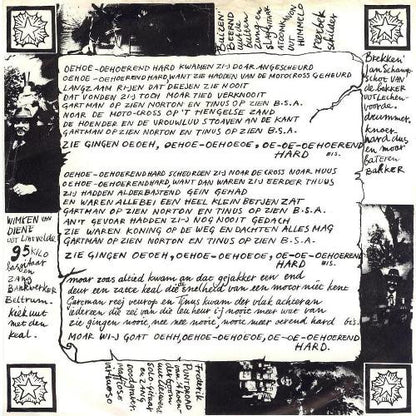 BULLEN
BEEREND
leuke
bullen
zang en
slaggitaar
WOONACHTIG
UUT
HUMMELO
meerbek
schilder
OEHOE-OEHOEREND HARD KWAMEN ZIJ DOAR ANGESCHEURD
OEHOE-OEHOEREND HARD, WANT ZIE HADDEN VAN DE MOTOCROSS GEHEURD
LANGZAAM RIJEN DAT DEEJEN ZIE NOOIT
DAT VONDEN ZIJ TOCH MOAR TIED VERKNOOIT
GARTMAN OP ZIEN NORTON EN TINUS OP ZIEN B.S.A.
NOAR DE MOTO-CROSS OP 'T HENGELSE ZAND
DE HOENDER EN DE VROUWLU STOAVEN AN DE KANT
GARTMAN OP ZIEN NORTON EN TINUS OP ZIEN B.S.A.
ZIE GINGEN OEOEH, OEHOE-OEHOEOE, OE-OE-OEHOEREND
HARD BIS.
OEHOE-OEHOEREND HARD SCHEORDEN ZIJ NOAR DE CROSS NOAR HUUS
OEHOE-OEHOERENDHARD, WANT DAN WAREN ZIJ EERDER THUUS
ZIJ HADDEN ALDERBASTEND GEIN GEHAD
EN WAREN ALLEBEI EEN HEEL KLEIN BETJEN ZAT
GARTMAN OP ZIEN NORTON EN TINUS OP ZIEN B.S.A.
ANT GEVOAR HADDEN ZIJ NOG NOOIT GEDACH
ZIE WAREN KONING OP DE WEG EN DACHTEN ALLES MAG
GARTMAN OP ZIEN NORTON EN TINUS OP ZIEN B.S.A.
ZIE GINGEN OEOEH, OEHOE-OEHOEOE, OE-OE-OEHOEREND
HARD BIS.
moar zoas altied kwam an dat gejakker een end
deur een zatte keal die snelheid van een motor niet kent
Gartman reej veurop en Tinus kwam der vlak achteran
iederen die zei van die leu heur ij nooit meer wat van
zie gingen nooit, nee nee nooit, nooit meer oerend hard bis.
MOAR WIJ GOAT OEHH, OEHOE-OEHOEOE, OE-OE-OEHOEREND
HARD.
Brekken
Jan Schamp
schot VAN
de bakker
uut Lechen-
voorde.
drummer.
knoer-
hard dus
en moat
bateren
BAKKER
WIMKEN VAN
DIENE
uut Lintvelde
95 KILO
basgitaar
en
zang
BANKWERKER
Beltrum.
kiek uut
met den
keal.
Frederik
PUNTDRAAD
van 't hoen
der boom
uut Lievelde
solo-gitaar
en zang
doodgraver
virtuoso